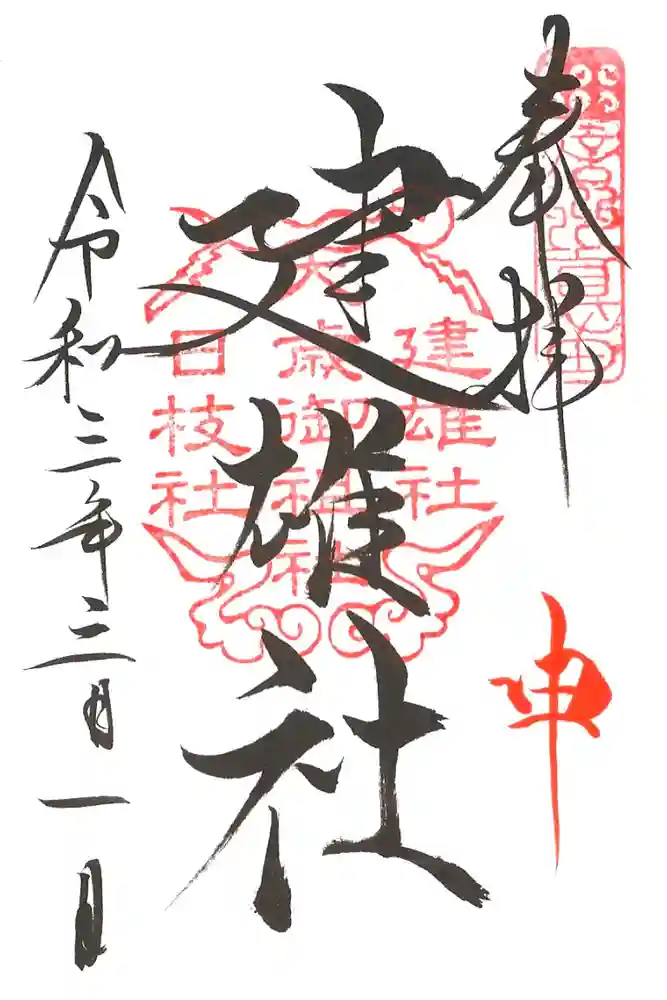 奉拝
申
建雄社
令和三年三月一日
建雄社
大歳御祖社
日枝社